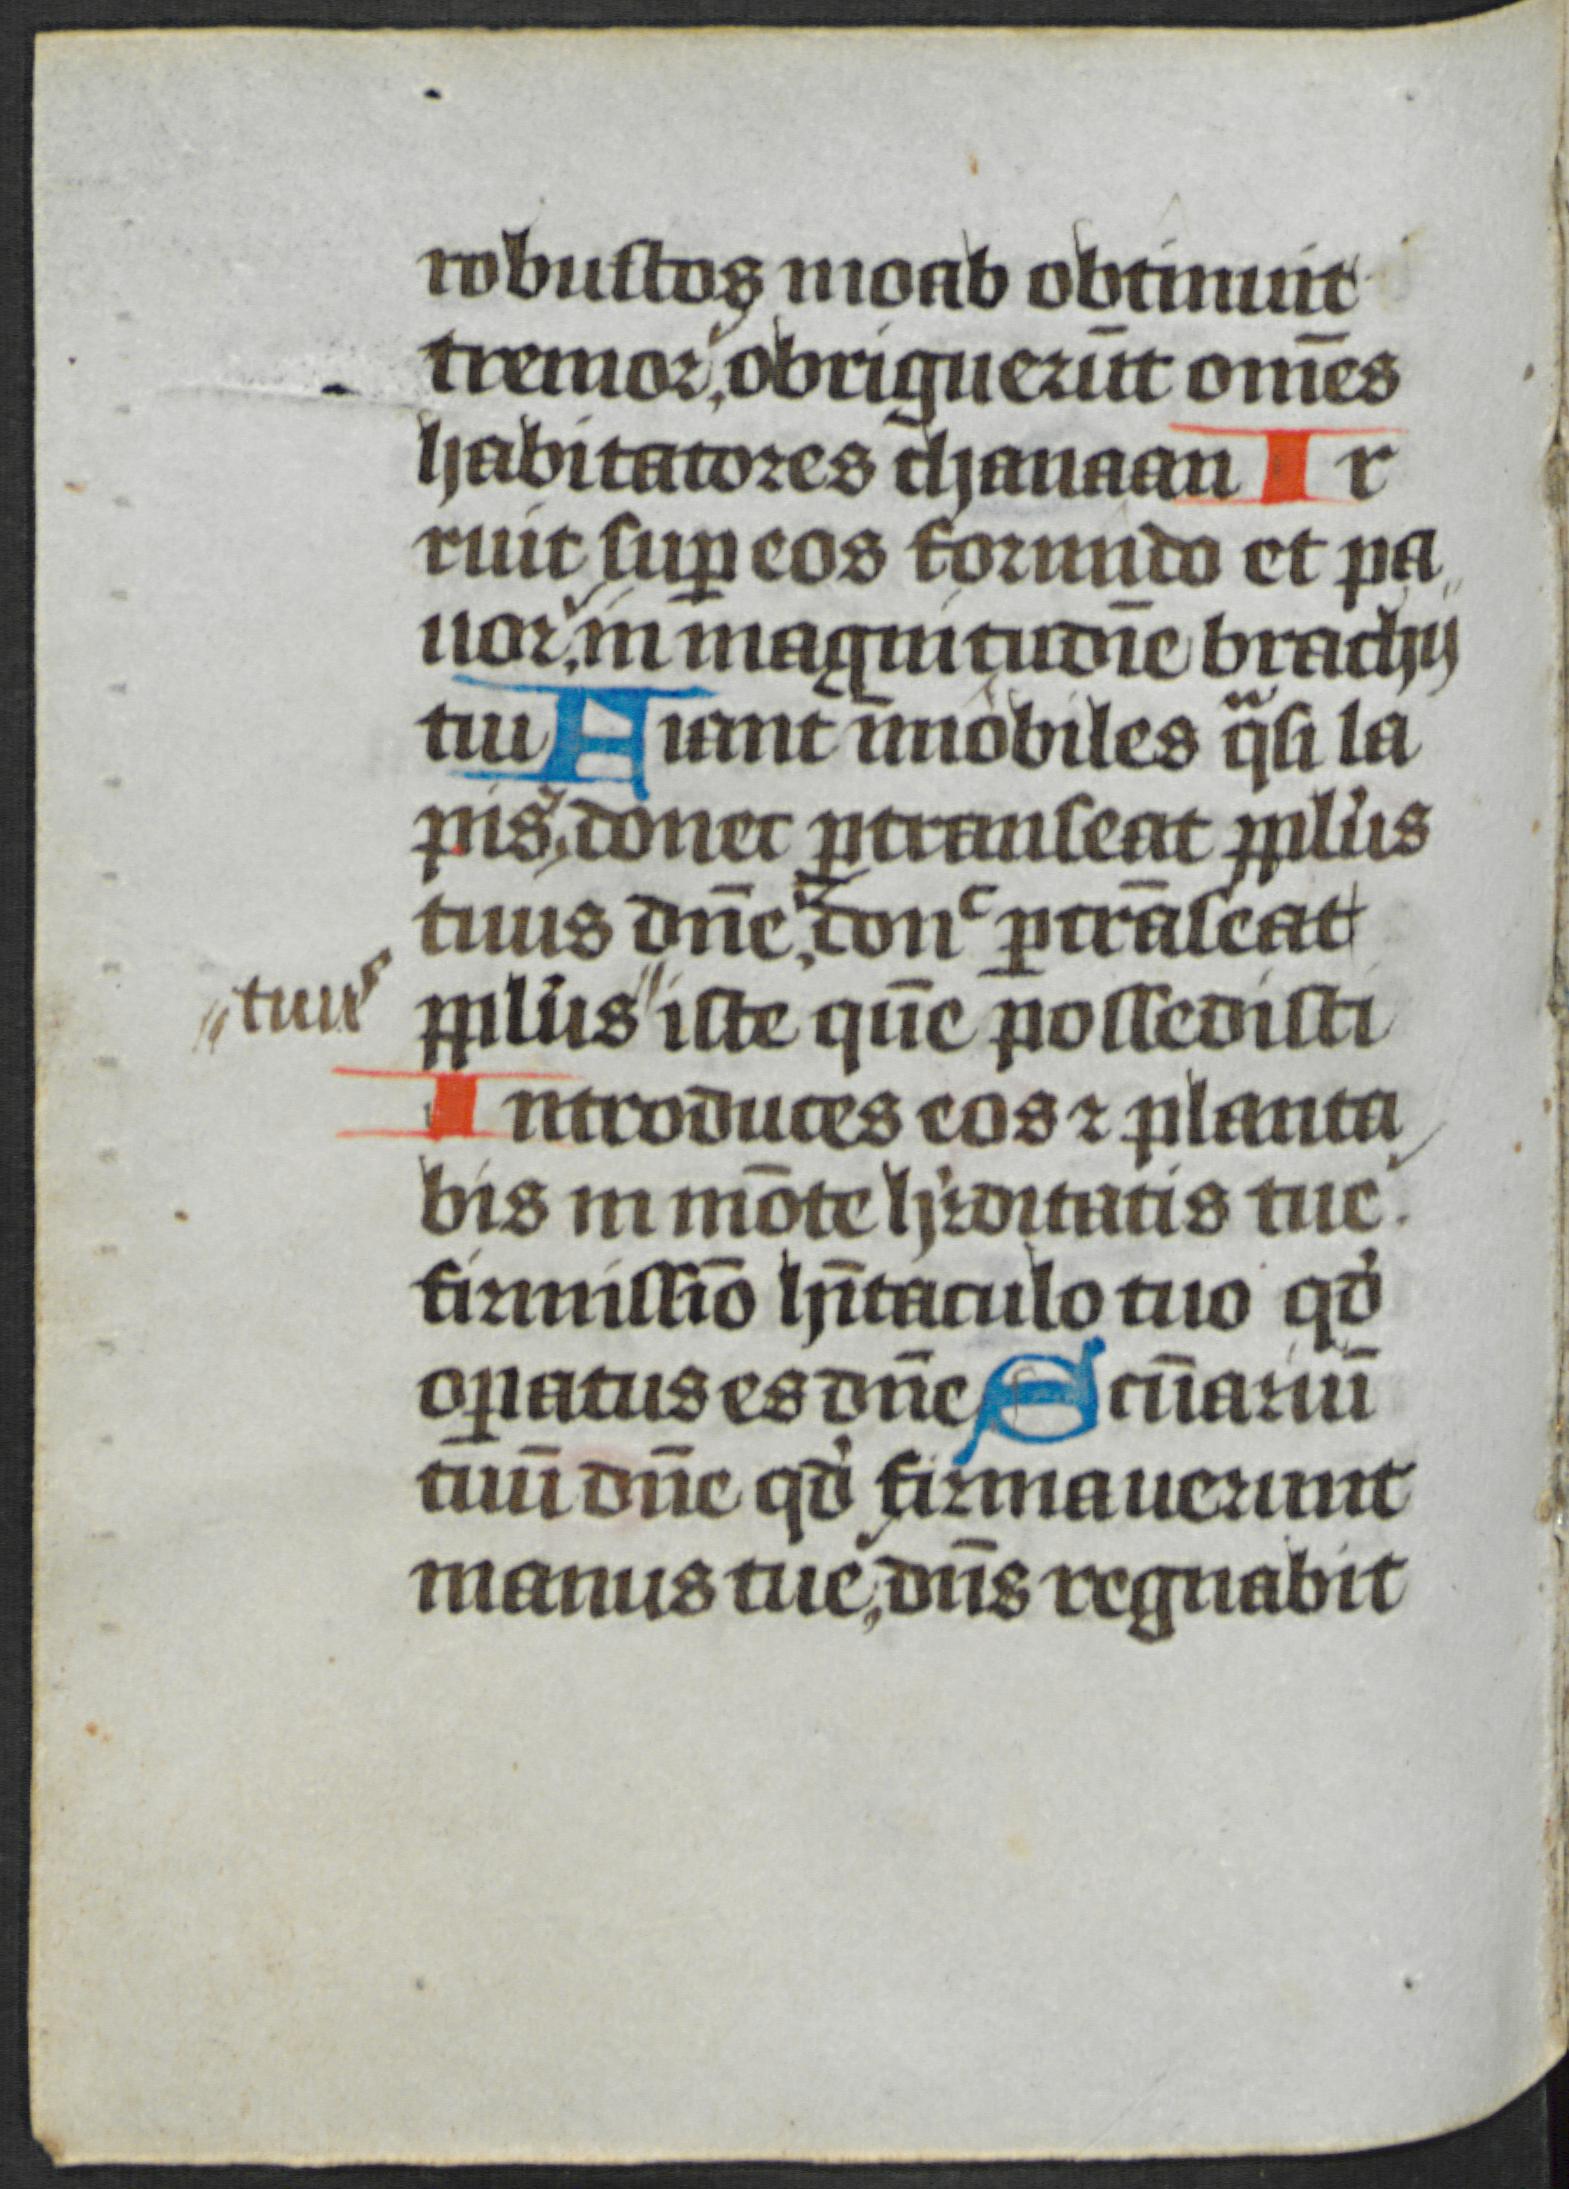 robustos moab obtinuit
tremor, obriguerūt om̄es
habitatores chanaan Ir
ruit suꝑ eos formido et pa
uor, in magnitudīe brachij
tui Fiant īmobiles qͣsi la
pis, donec ꝑtranseat ppl'us
tuus dn̄e, donᶜ ꝑtrāseat
tuus ppl'us iste quē possedisti
Introduces eos ⁊ planta
bis in mōte h'editatis tue.
firmissīo hītaculo tuo qd'
oꝑatus es dn̄e Scūariū
tuū dn̄e qd' firmauerunt
manus tue, dn̄s regnabit